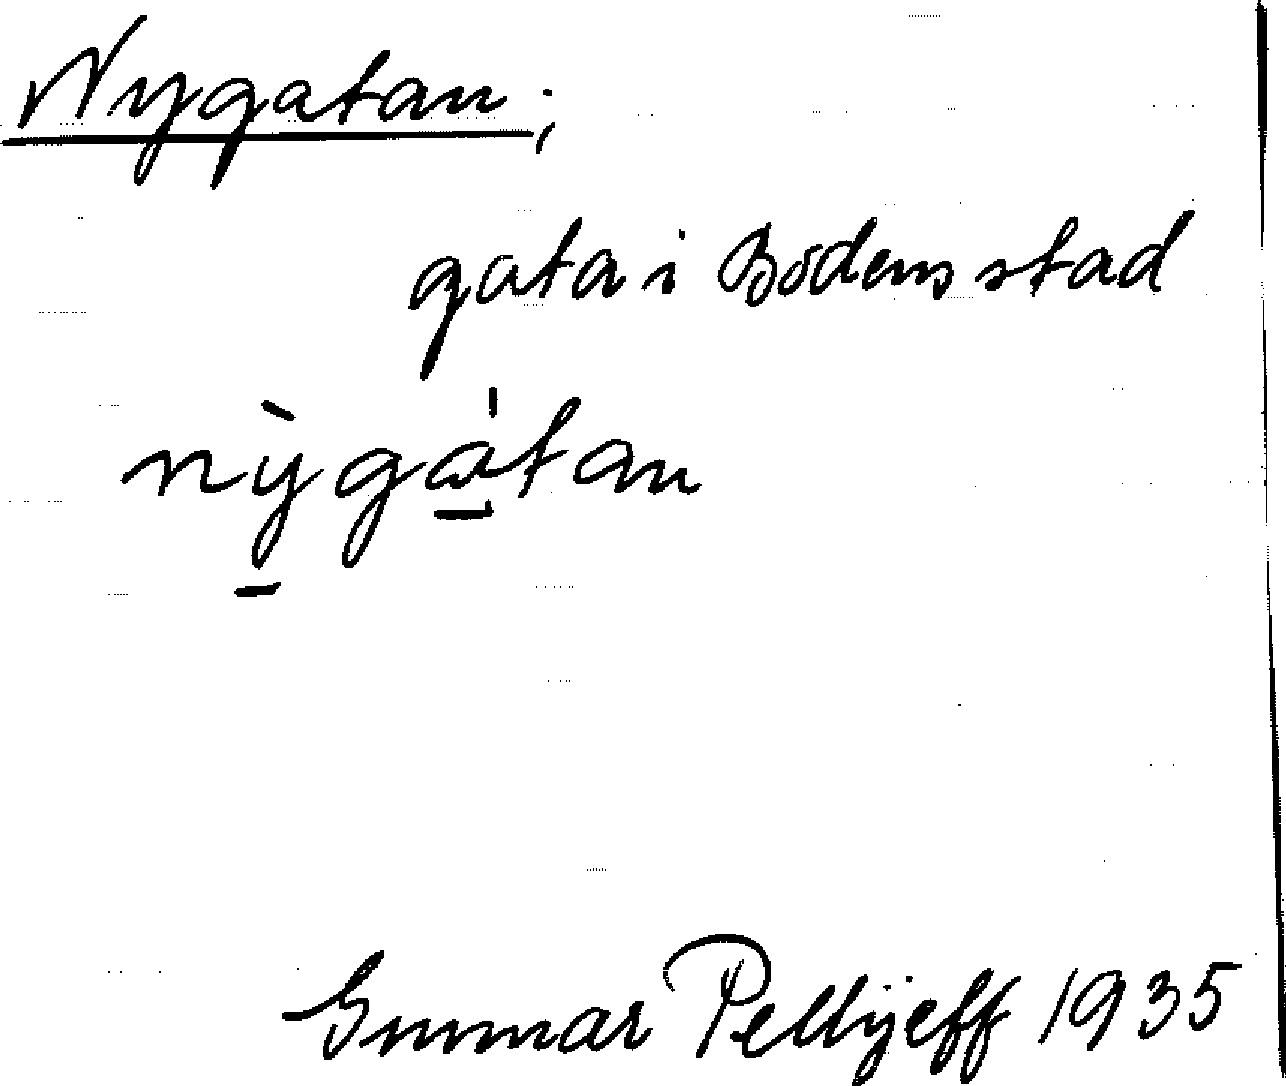 Nygatan;
gata i Bodens stad
nỳ̱gá̱tan
Gunnar Pellijeff 1935